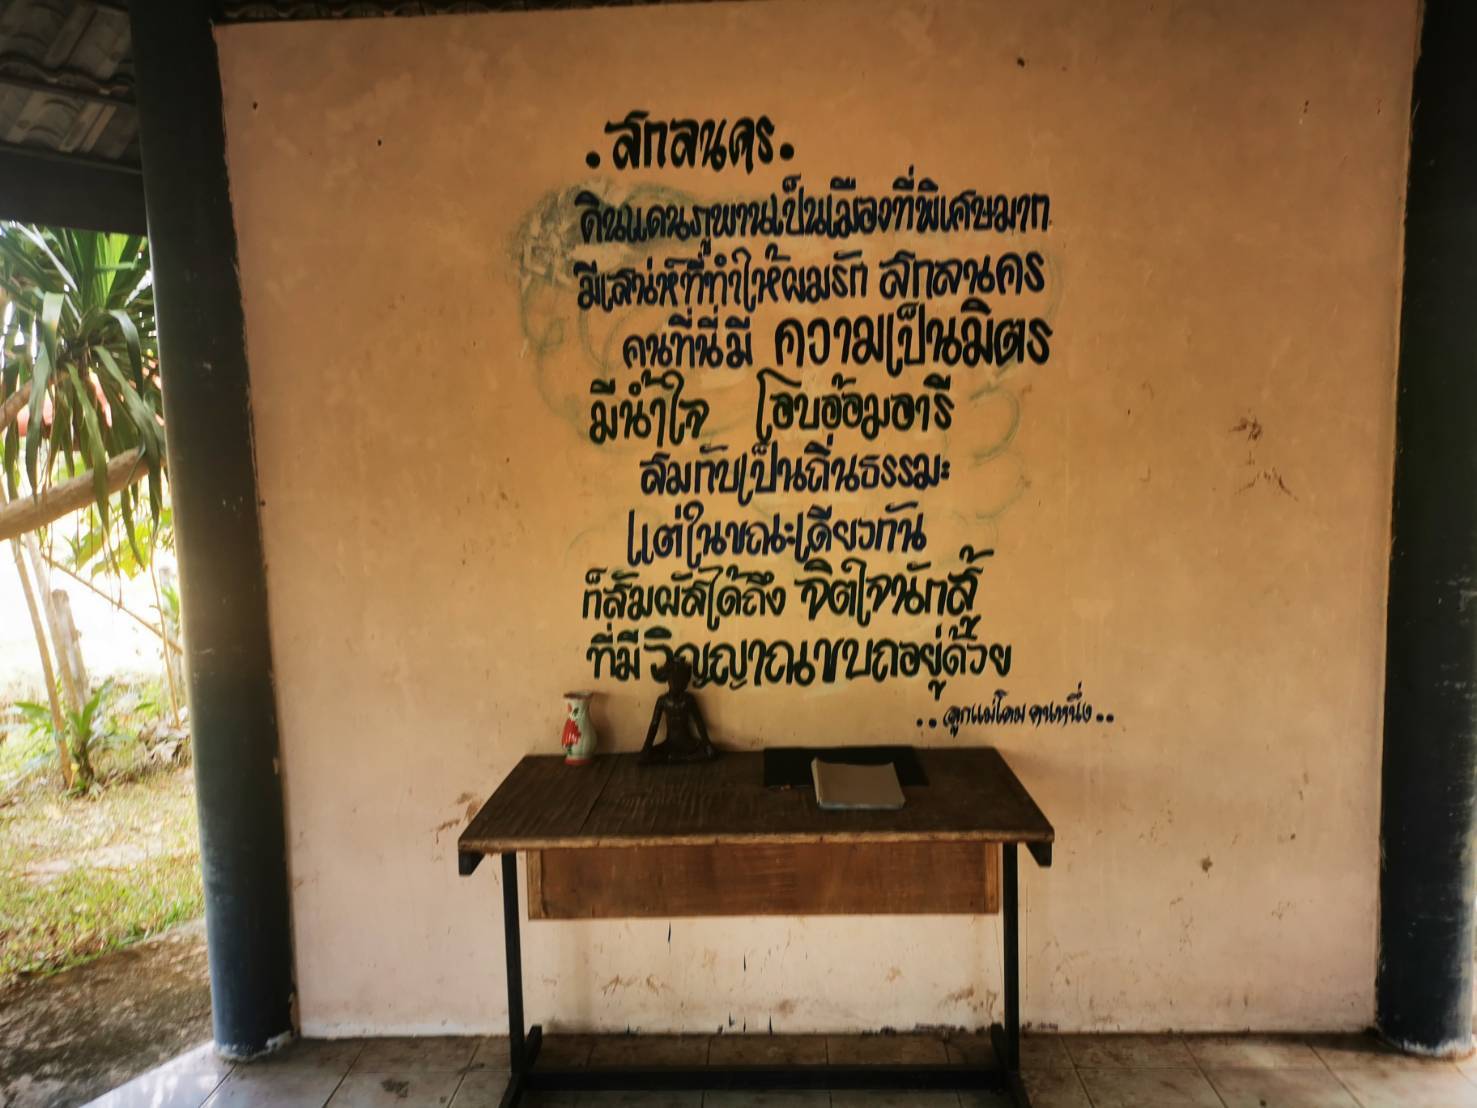 . สกลนคร .
ดินแดนภูพานเป็นเมืองที่พิเศษมาก
มีเสน่ห์ที่ทำให้ผมรัก สกลนคร
คนที่นี่มี ความเป็นมิตร
มีน้ำใจ โอบอ้อมอารี
สมกับเป็นถิ่นธรรมะ
แต่ในขณะเดียวกัน
ก็สัมผัสได้ถึง จิตใจนักสู้
ที่มี วิญญาณขบถอยู่ด้วย
.. ลูกแม่โดม คนหนึ่ง ..